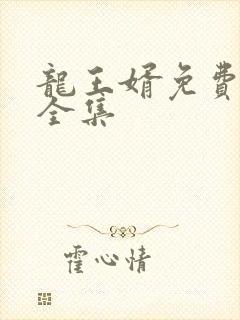 龍王婿免費
全集
霍心情